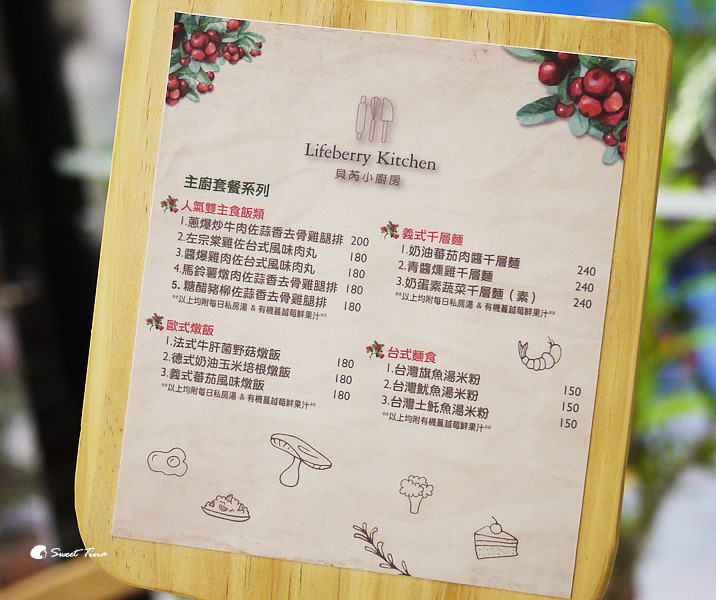 Lifeberry Kitchen
貝芮小廚房
主廚套餐系列
人氣雙主食飯類
1.蔥爆炒牛肉佐蒜香去骨雞腿排 200
2.左宗棠雞佐台式風味肉丸 180
3.醬爆雞肉佐台式風味肉丸 180
4.馬鈴薯燉肉佐蒜香去骨雞腿排 180
5.糖醋豬柳佐蒜香去骨雞腿排 180
**以上均附每日私房湯 & 有機蔓越莓鮮果汁**
歐式燉飯
1.法式牛肝菌野菇燉飯 180
2.德式奶油玉米培根燉飯 180
3.義式蕃茄風味燉飯 180
**以上均附每日私房湯 & 有機蔓越莓鮮果汁**
義式千層麵
1.奶油蕃茄肉醬千層麵 240
2.青醬燻雞千層麵 240
3.奶蛋素蔬菜千層麵（素） 240
**以上均附每日私房湯 & 有機蔓越莓鮮果汁**
台式麵食
1.台灣旗魚湯米粉 150
2.台灣魷魚湯米粉 150
3.台灣土魠魚湯米粉 150
**以上均附每日私房湯 & 有機蔓越莓鮮果汁**
Sweet Tina